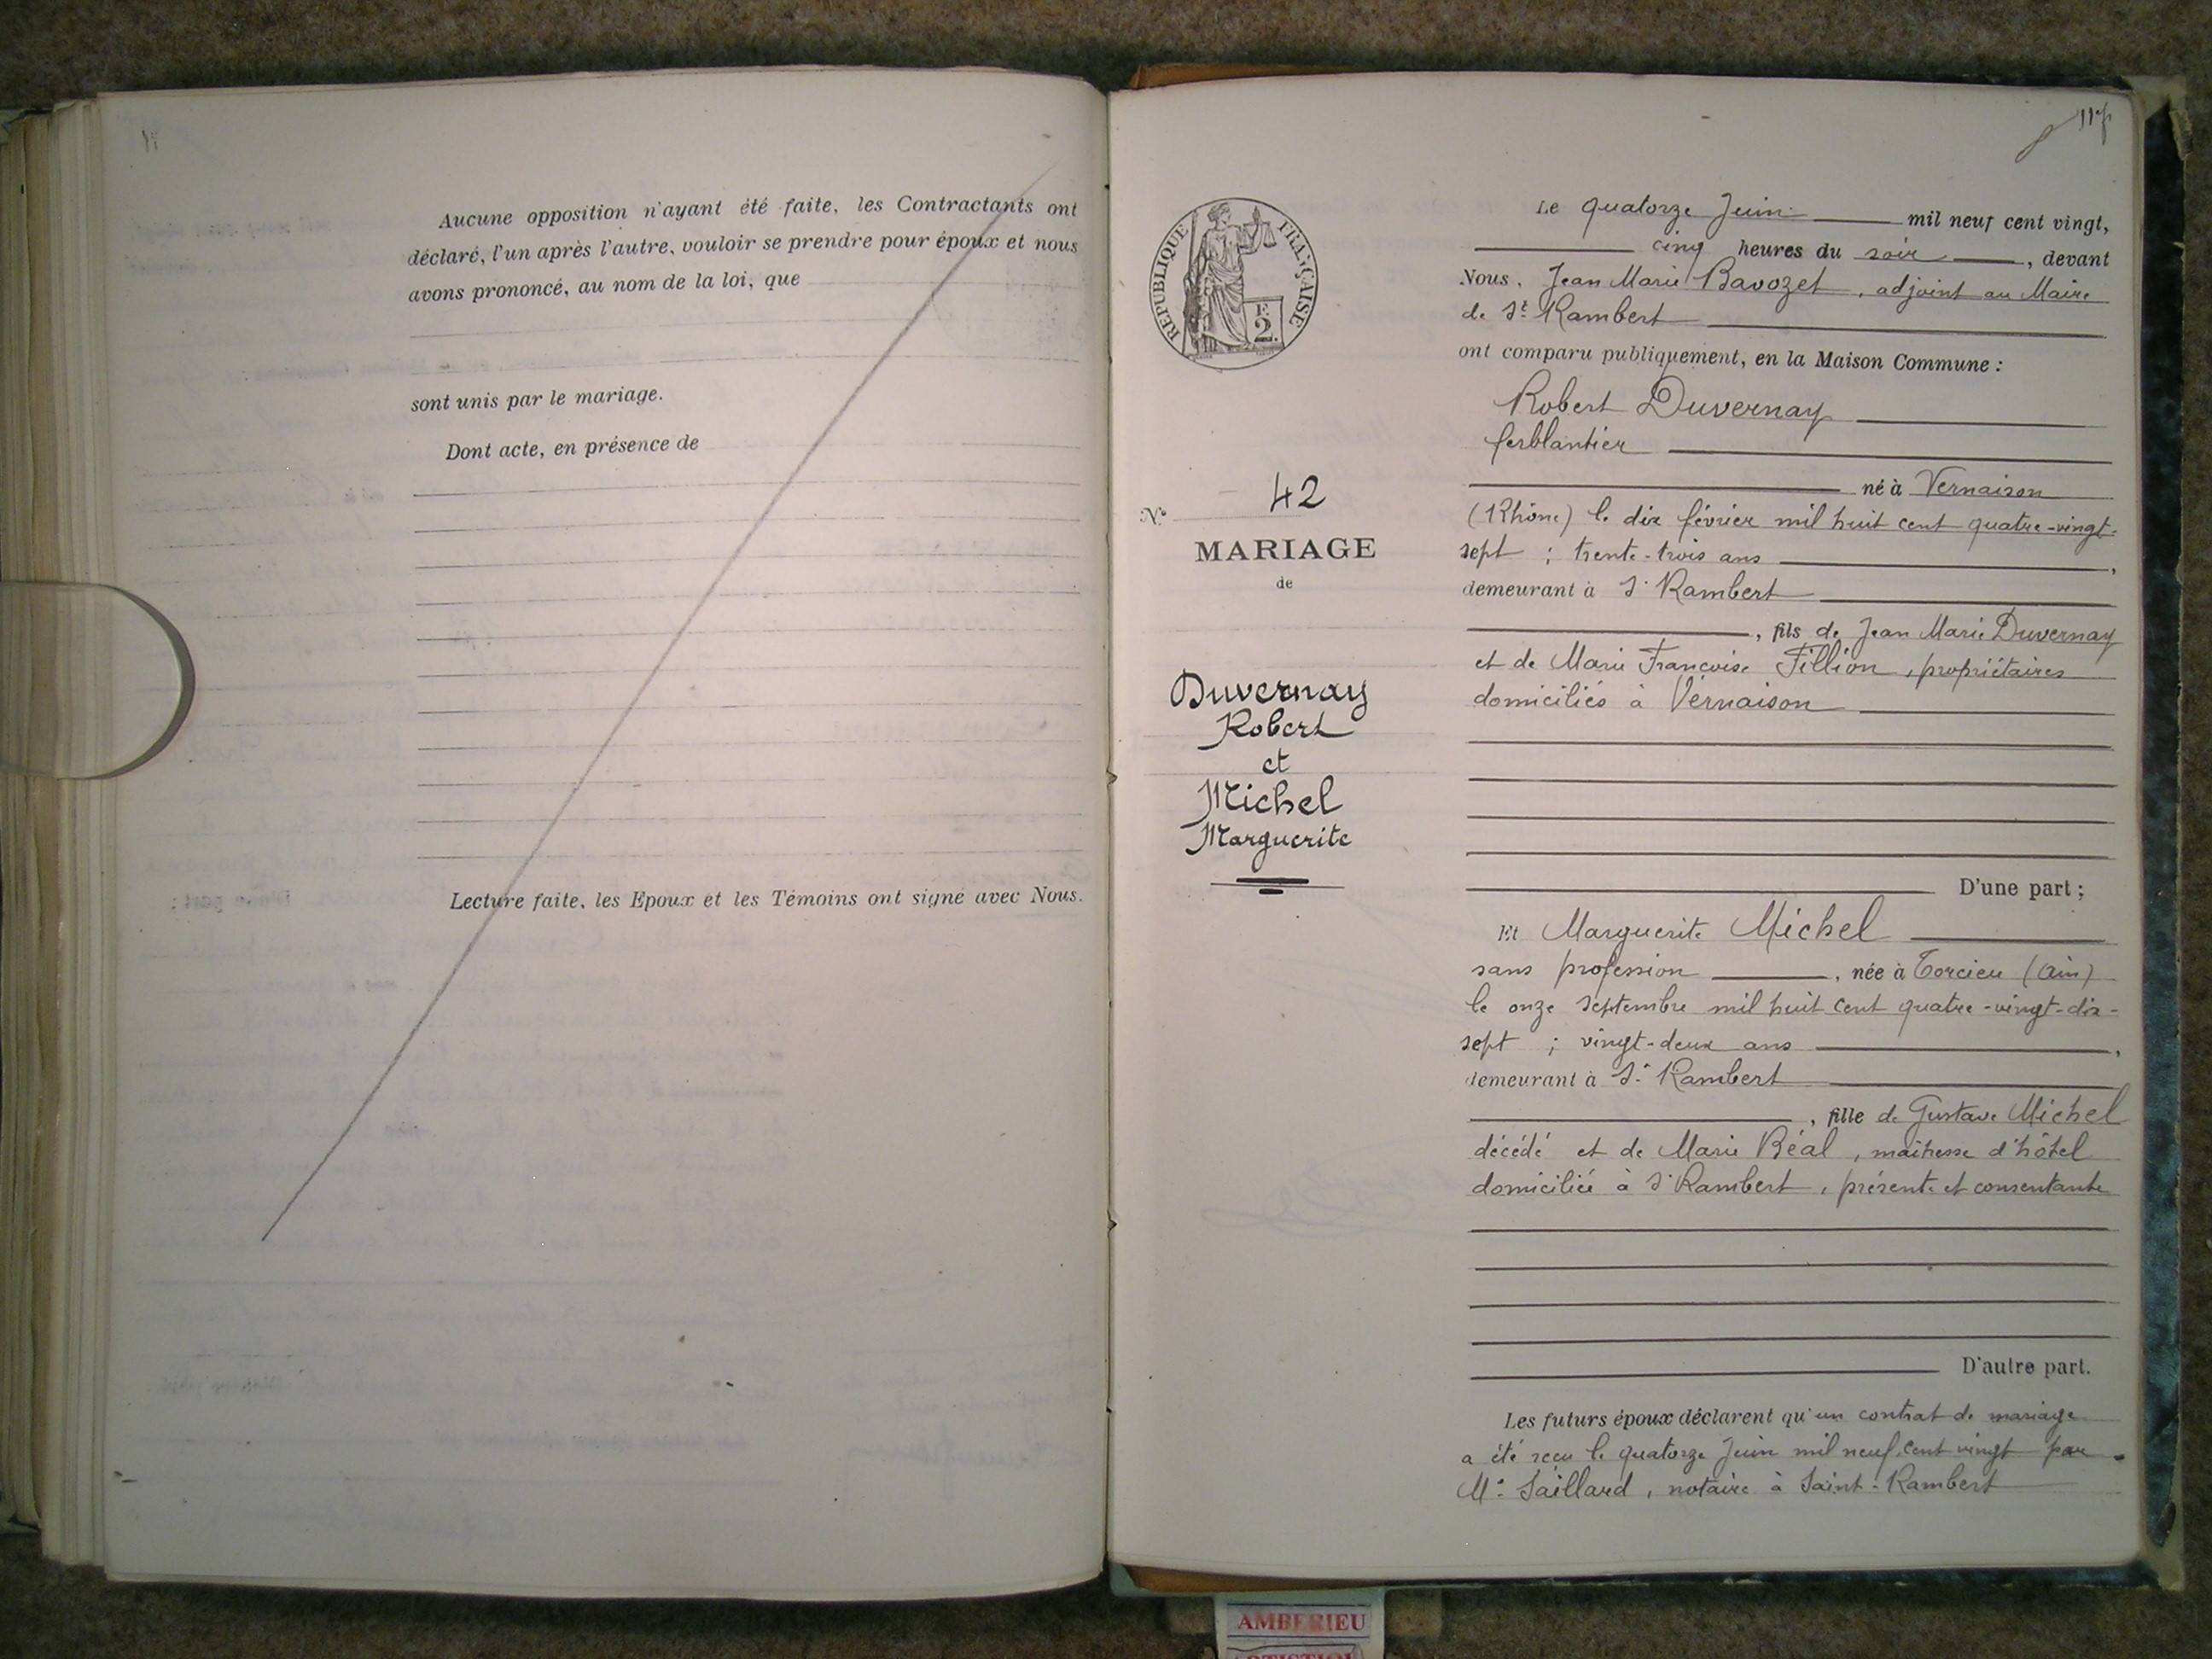 Aucune opposition n'ayant été faite, les Contractants ont
déclaré, l'un après l'autre, vouloir se prendre pour époux et nous
avons prononcé, au nom de la loi, que
sont unis par le mariage.
Dont acte, en présence de
Lecture faite, les Epoux et les Témoins ont signé avec Nous.
RÉPUBLIQUE FRANÇAISE
F.
2.
N° 42
MARIAGE
de
Duvernay
Robert
et
Michel
Marguerite
Le quatorze Juin mil neuf cent vingt,
cinq heures du soir, devant
Nous, Jean Marie Bavozet, adjoint au Maire
de St Rambert
ont comparu publiquement, en la Maison Commune :
Robert Duvernay
ferblantier
né à Vernaison
(Rhône) le dix février mil huit cent quatre-vingt-
sept ; trente-trois ans,
demeurant à St Rambert
, fils de Jean Marie Duvernay
et de Marie Françoise Fillion, propriétaires
domiciliés à Vernaison
D'une part ;
Et Marguerite Michel
sans profession, née à Torcieu (Ain)
le onze septembre mil huit cent quatre-vingt-dix-
sept ; vingt-deux ans,
demeurant à St Rambert
, fille de Gustave Michel
décédé et de Marie Béal, maîtresse d'hôtel
domiciliée à St Rambert, présente et consentante
D'autre part.
Les futurs époux déclarent qu'un contrat de mariage
a été reçu le quatorze Juin mil neuf cent vingt par
Me Saillard, notaire à Saint-Rambert
AMBERIEU